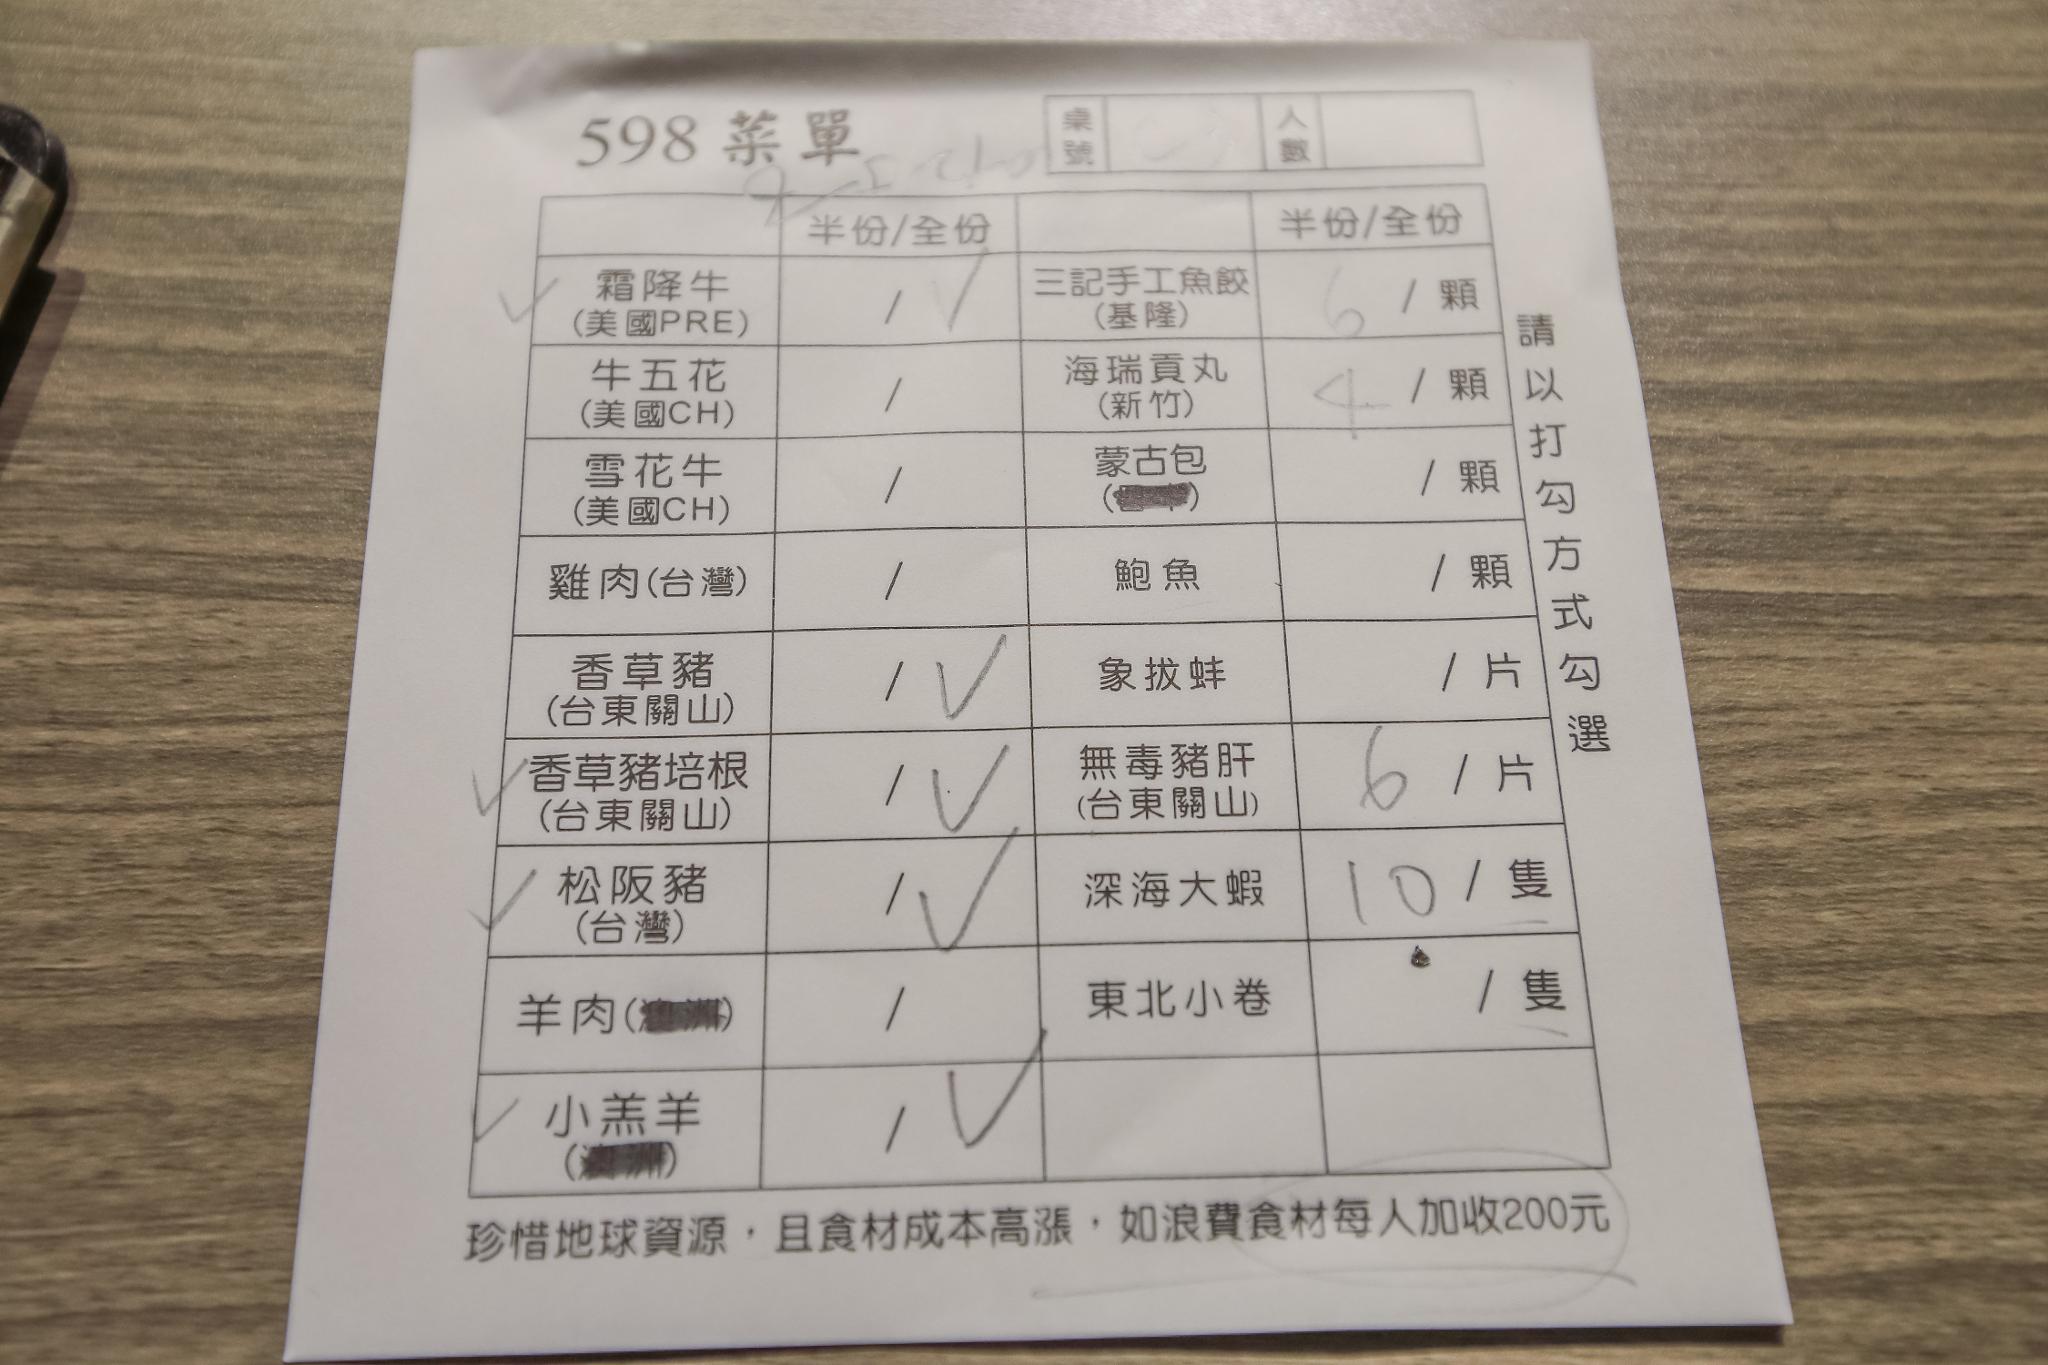 598 菜單
桌號
人數
半份/全份
半份/全份
✓ 霜降牛 / ✓
(美國PRE)
三記手工魚餃 6 / 顆
(基隆)
牛五花 /
(美國CH)
海瑞貢丸 4 / 顆
(新竹)
雪花牛 /
(美國CH)
蒙古包 / 顆
雞肉(台灣) /
鮑魚 / 顆
香草豬 / ✓
(台東關山)
象拔蚌 / 片
✓ 香草豬培根 / ✓
(台東關山)
無毒豬肝 6 / 片
(台東關山)
✓ 松阪豬 / ✓
(台灣)
深海大蝦 10 / 隻
羊肉( ) /
東北小卷 / 隻
✓ 小羔羊 / ✓
請以打勾方式勾選
珍惜地球資源，且食材成本高漲，如浪費食材每人加收200元